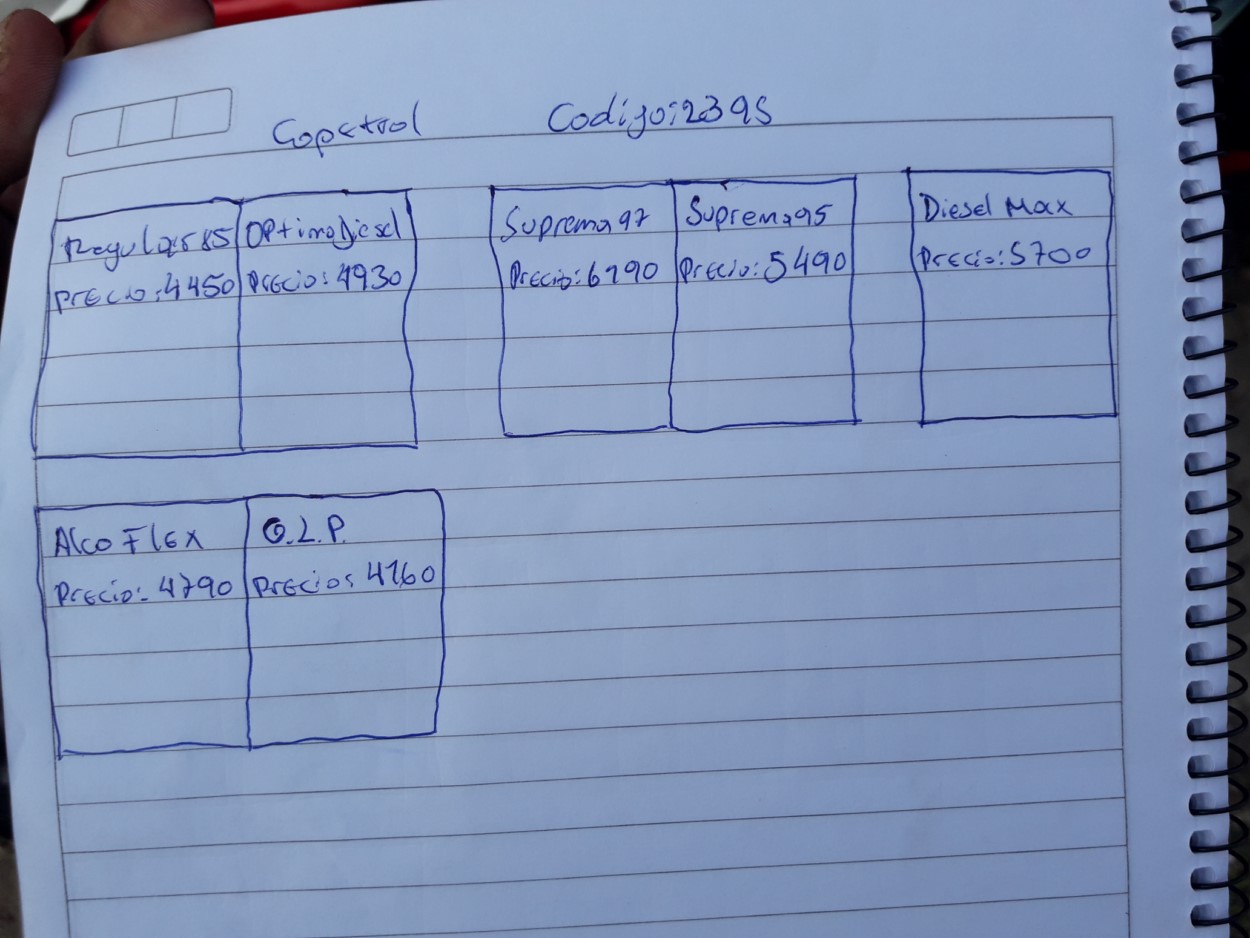 Copetrol Codigo:2395
Regular 85
Precio:4450
OPtimo Diesel
Precio:4930
Suprema 97
Precio:6190
Suprema 95
Precio:5490
Diesel Max
Precio:5700
Alco Flex
Precio: 4790
G.L.P.
Precio: 4160